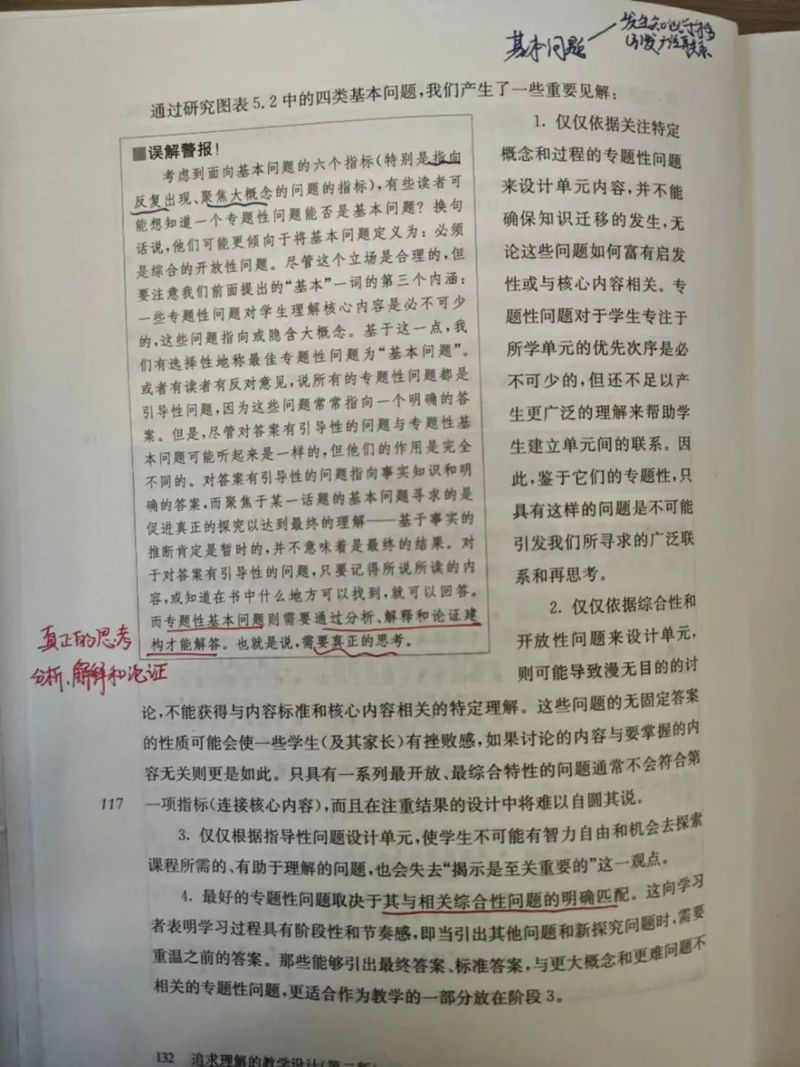 基本问题
通过研究图表5.2中的四类基本问题，我们产生了一些重要见解：
■误解警报！
考虑到面向基本问题的六个指标（特别是指向
反复出现、聚焦大概念的问题的指标），有些读者可
能想知道一个专题性问题能否是基本问题？换句
话说，他们可能更倾向于将基本问题定义为：必须
是综合的开放性问题。尽管这个立场是合理的，但
要注意我们前面提出的“基本”一词的第三个内涵：
一些专题性问题对学生理解核心内容是必不可少
的，这些问题指向或隐含大概念。基于这一点，我
们有选择性地称最佳专题性问题为“基本问题”。
或者有读者有反对意见，说所有的专题性问题都是
引导性问题，因为这些问题常常指向一个明确的答
案。但是，尽管对答案有引导性的问题与专题性基
本问题可能听起来是一样的，但他们的作用是完全
不同的。对答案有引导性的问题指向事实知识和明
确的答案，而聚焦于某一话题的基本问题寻求的是
促进真正的探究以达到最终的理解——基于事实的
推断肯定是暂时的，并不意味着是最终的结果。对
于对答案有引导性的问题，只要记得所说所读的内
容，或知道在书中什么地方可以找到，就可以回答。
而专题性基本问题则需要通过分析、解释和论证建
构才能解答。也就是说，需要真正的思考。
真正的思考
分析、解释和论证
1. 仅仅依据关注特定
概念和过程的专题性问题
来设计单元内容，并不能
确保知识迁移的发生，无
论这些问题如何富有启发
性或与核心内容相关。专
题性问题对于学生专注于
所学单元的优先次序是必
不可少的，但还不足以产
生更广泛的理解来帮助学
生建立单元间的联系。因
此，鉴于它们的专题性，只
具有这样的问题是不可能
引发我们所寻求的广泛联
系和再思考。
2. 仅仅依据综合性和
开放性问题来设计单元，
则可能导致漫无目的的讨
论，不能获得与内容标准和核心内容相关的特定理解。这些问题的无固定答案
的性质可能会使一些学生（及其家长）有挫败感，如果讨论的内容与要掌握的内
容无关则更是如此。只具有一系列最开放、最综合特性的问题通常不会符合第
117
一项指标（连接核心内容），而且在注重结果的设计中将难以自圆其说。
3. 仅仅根据指导性问题设计单元，使学生不可能有智力自由和机会去探索
课程所需的、有助于理解的问题，也会失去“揭示是至关重要的”这一观点。
4. 最好的专题性问题取决于其与相关综合性问题的明确匹配。这向学习
者表明学习过程具有阶段性和节奏感，即当引出其他问题和新探究问题时，需要
重温之前的答案。那些能够引出最终答案、标准答案，与更大概念和更难问题不
相关的专题性问题，更适合作为教学的一部分放在阶段3。
132 追求理解的教学设计（第二版）